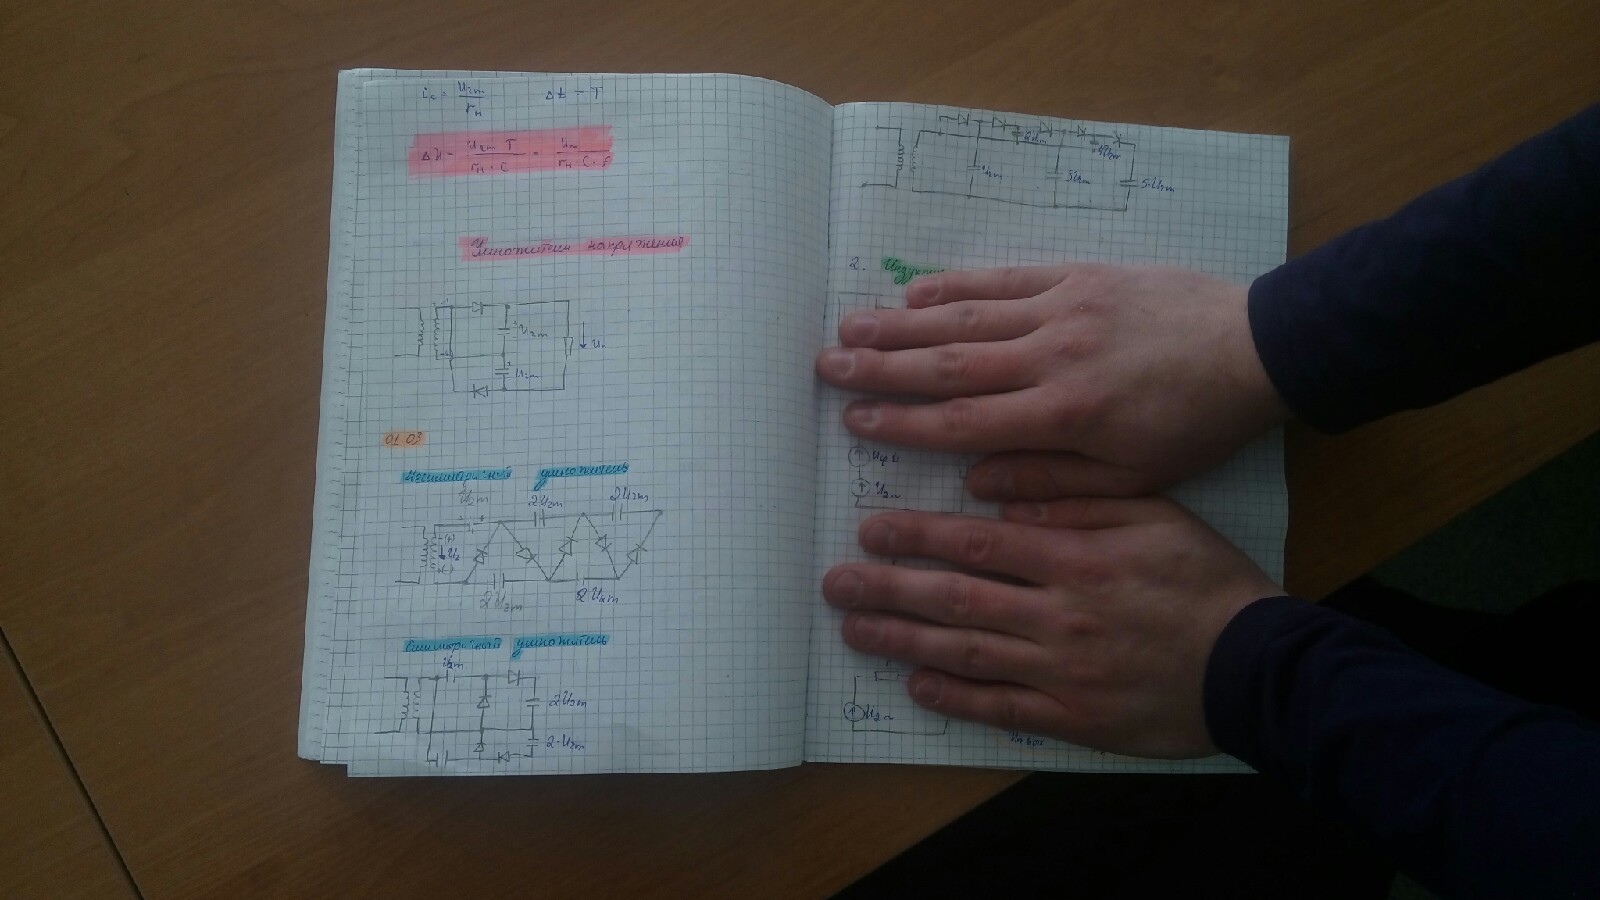 i_c = U_2m / r_н    Δt = T
ΔU = U_2m T / r_н · C = U_m / r_н · C · f
Умножители напряжения
U_2m
U_н
U_2m
01 03
Несимметричный умножитель
U_2m 2U_2m 2U_2m
-(+)
U_2
+(-)
2U_2m 2U_2m
Симметричный умножитель
U_2m
2U_2m
2·U_2m
2U_2m
4U_2m
U_2m 3U_2m 5U_2m
2.
U_2~
U_2~